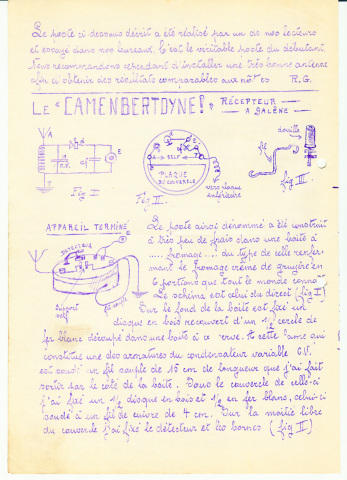 Le poste ci-dessous décrit a été réalisé par un de nos lecteurs
et essayé dans nos bureaux. C'est le véritable poste du débutant.
Nous recommandons cependant d'installer une très bonne antenne
afin d'obtenir des résultats comparables aux nôtres R.G.
LE "CAMENBERTDYNE!" RÉCEPTEUR
A GALÈNE
Fig I
A SELF
PLAQUE
DU COUVERCLE
Fig II
vers plaque
inférieure
douille
fil
fig III
APPAREIL TERMINÉ
DÉTECTEUR
support
self
Le poste ainsi dénommé a été construit
à très peu de frais dans une boîte à
.... fromage...! du type de celle renfer
mant le fromage crème de gruyère en
6 portions que tout le monde connaît
Le schéma est celui du direct (fig I)
Sur le fond de la boîte est fixé un
disque en bois recouvert d'un 1/2 cercle de
fer blanc découpé dans une boîte à conserve. Et cette lame qui
constitue une des armatures du condensateur variable C.V.
est soudé un fil souple de 15 cm de longueur que j'ai fait
sortir par le côté de la boîte. Dans le couvercle de celle-ci
j'ai fixé un 1/2 disque en bois et 1/2 en fer blanc, celui-ci
soudé à un fil de cuivre de 4 cm. Sur la moitié libre
du couvercle j'ai fixé le détecteur et les bornes (fig II)